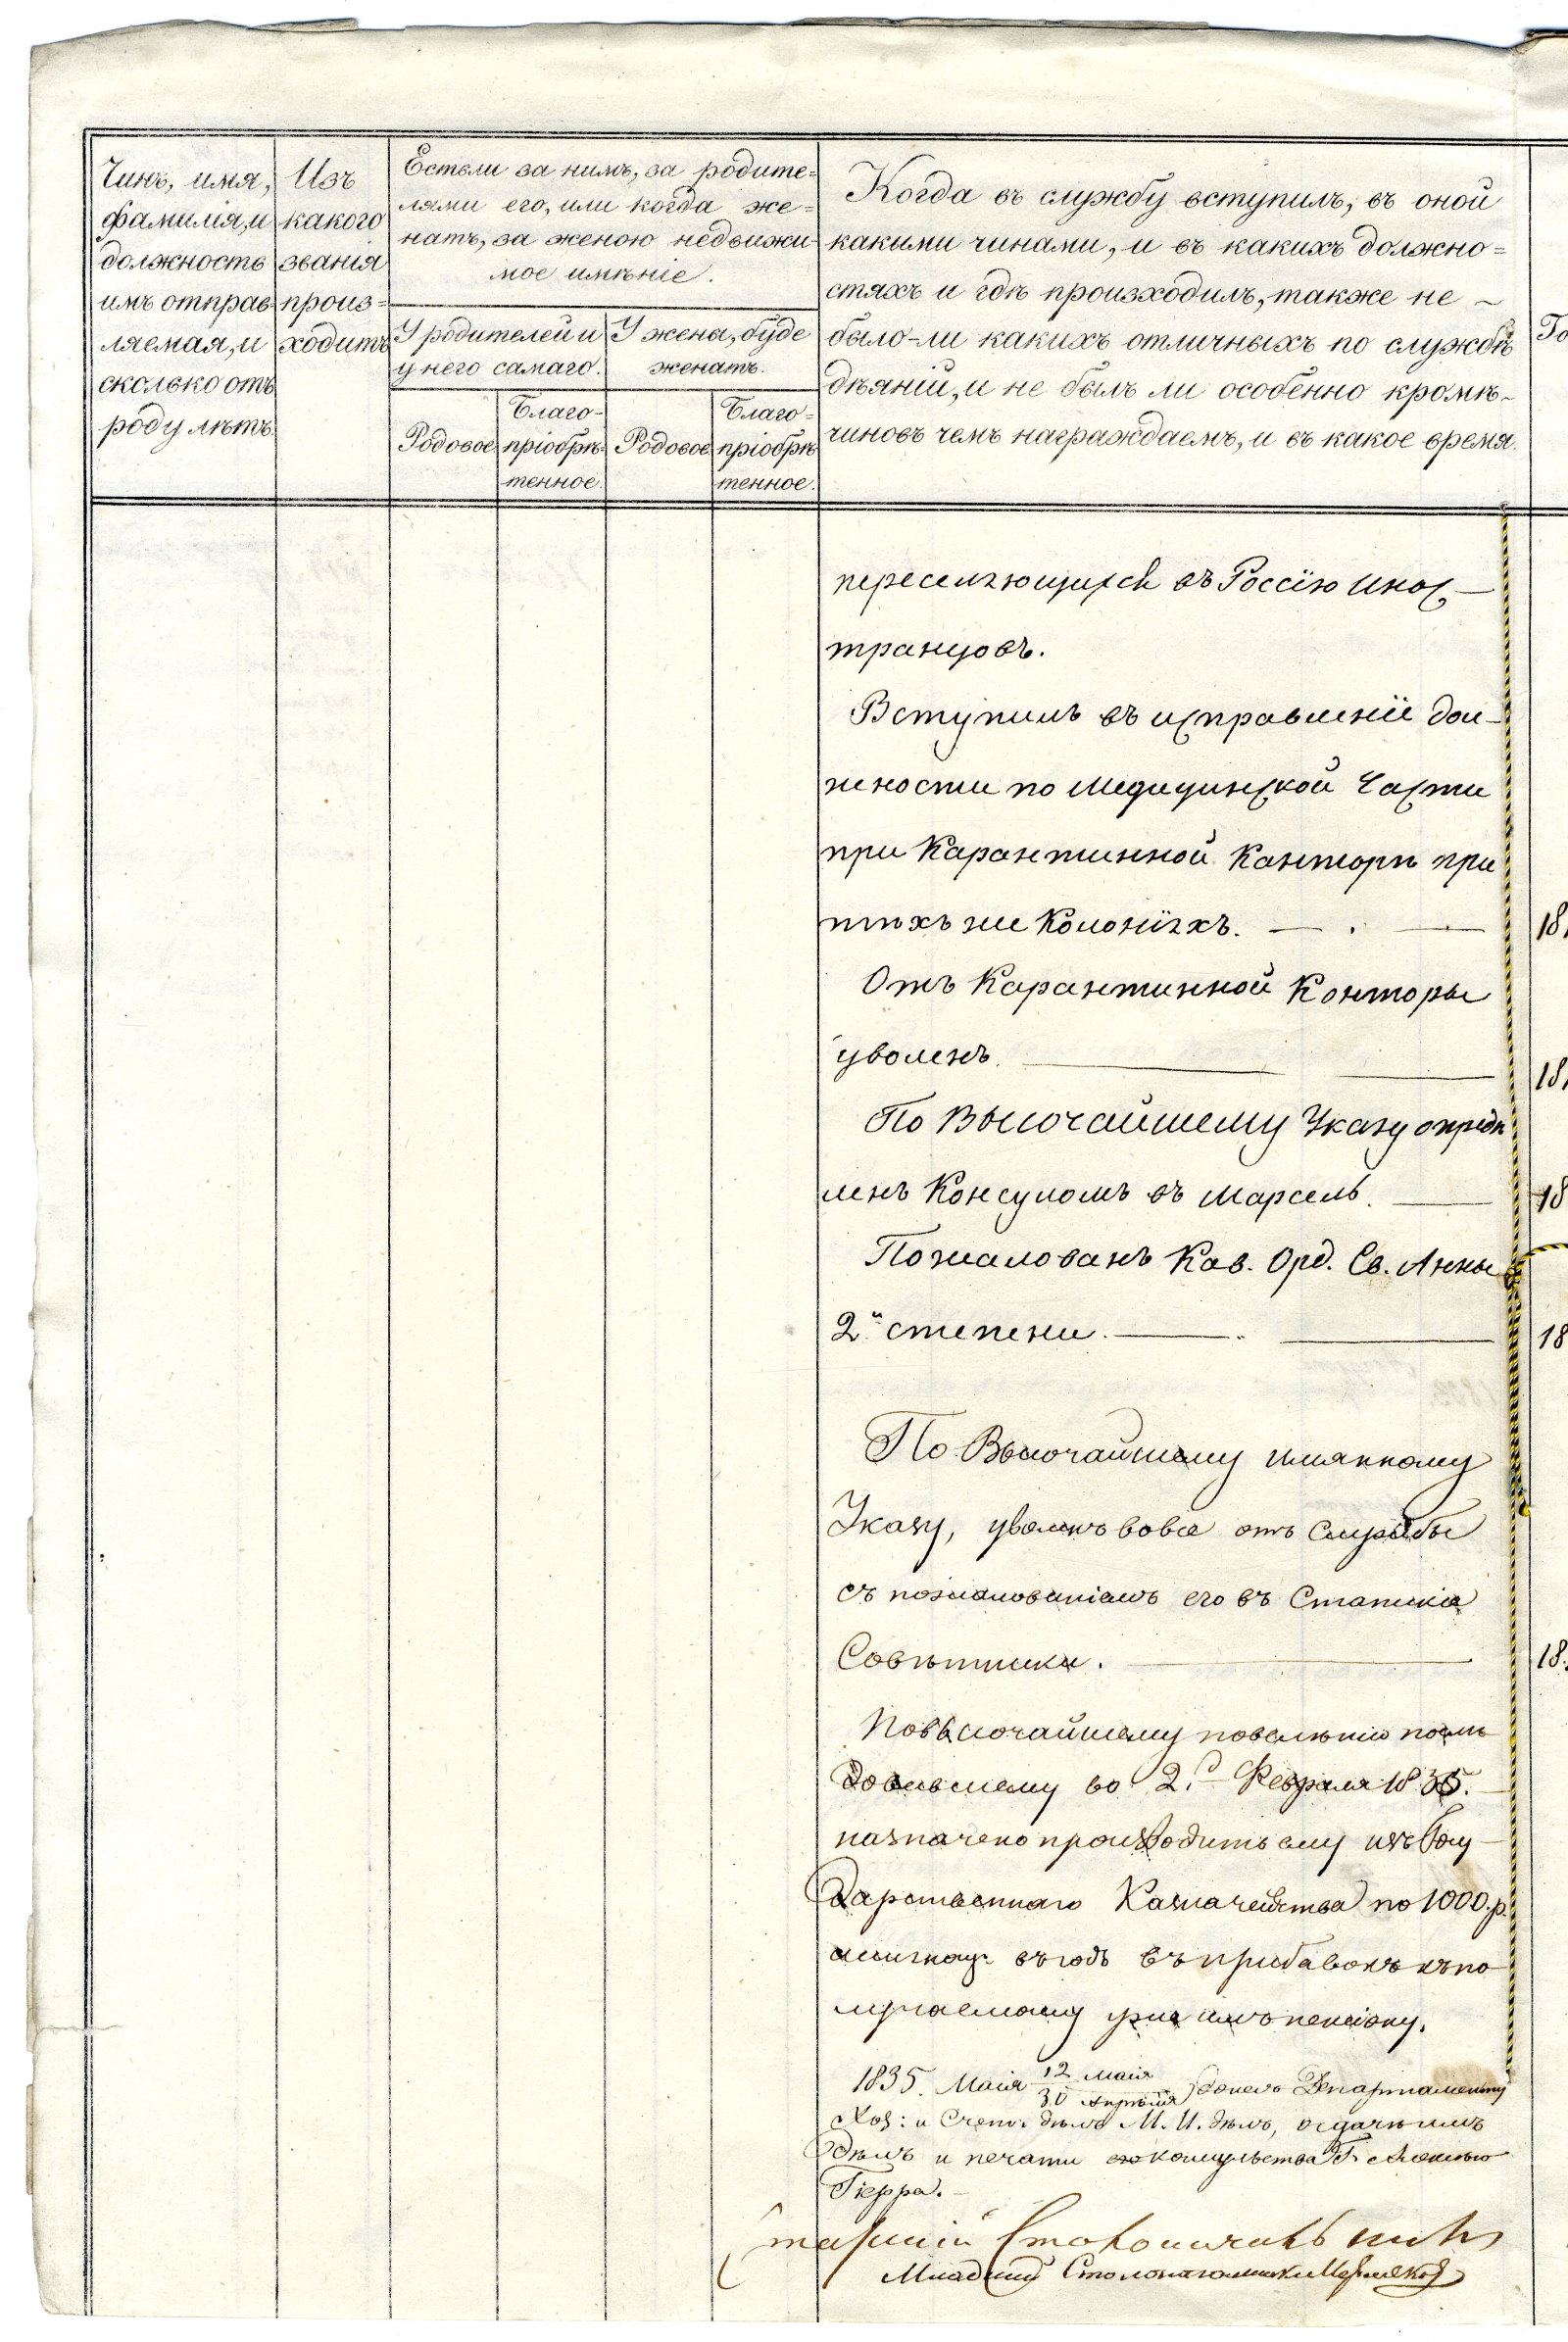 Чинъ, имя,
фамилія, и
должность
имъ отправ=
ляемая, и
сколько отъ
роду лѣтъ.
Изъ
какого
званія
произ=
ходитъ
Естьли за нимъ, за родите=
лями его, или когда же=
натъ, за женою недвижи-
мое имѣніе.
У родителей и
у него самаго.
У жены, буде
женатъ.
Родовое
Благо-
пріобрѣ-
тенное.
Родовое
Благо=
пріобрѣ
тенное.
Когда въ службу вступилъ, въ оной
какими чинами, и въ какихъ должно=
стяхъ и гдѣ произходилъ, также не ~
было-ли какихъ отличныхъ по службѣ
дѣяній, и не былъ ли особенно кромѣ ~
чиновъ чемъ награждаемъ, и въ какое время.
Го
переселяющихся въ Россїю инос—
транцовъ.
Вступилъ въ исправленїе дол—
жности по Медицинской Части
при Карантинной Канторѣ при
тѣхъ же Колонїяхъ. — . —
18
Отъ Карантинной Конторы
уволенъ. — —
18
По Высочайшему Указу опредѣ
ленъ Консуломъ въ Марсель. —
18
Пожалованъ Кав. Орд. Св. Анны
2й степени. — —
18
По Высочайшему имянному
Указу, уволенъ вовсе отъ службы
съ пожалованіемъ его въ Статскіе
Совѣтники. —
18
По Высочайшему повелѣнію послѣ
довавшему во 2й Февраля 1835. —
назначено производить ему изъ Госу—
дарственнаго Казначейства по 1000. р.
ассигнац: въ годъ въ прибавокъ къ по
лучаемому уже имъ пенсіону.
1835. Маія 12 Маія
30 Апрѣля донесъ Департаменту
Хоз: и Счетн: дѣлъ М. И. дѣлъ, о сдачѣ имъ
дѣлъ и печати консульства Г.
Піерра. —
Старшій Столоначальникъ
Младшій Столоначальникъ